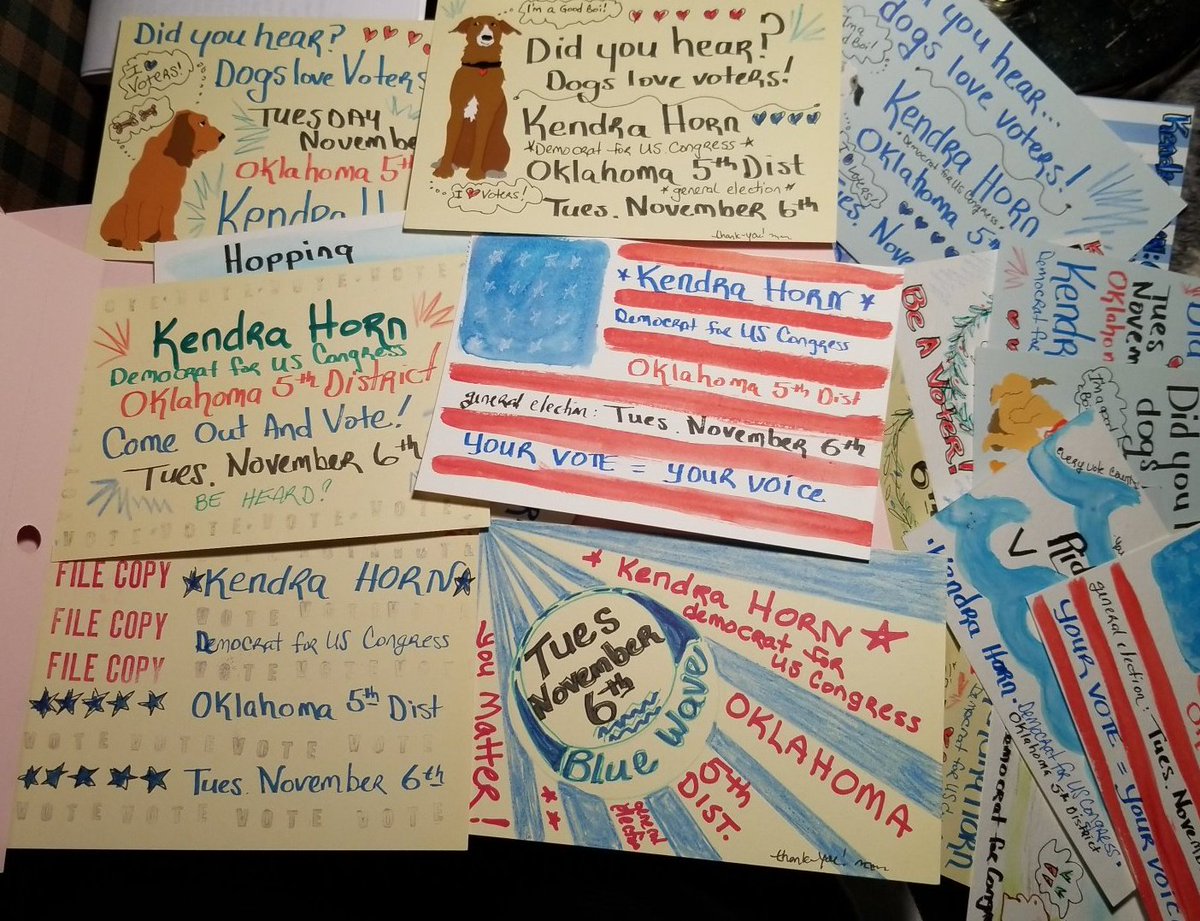 Did you hear?
Dogs love Voters
I ♥ Voters!
TUESDAY
November
Oklahoma 5th
Kendra
I'm a Good Boi!
Did you hear?
Dogs love voters!
Kendra Horn
*Democrat for US. Congress*
Oklahoma 5th Dist
*general election*
Tues. November 6th
I ♥ Voters!
thank-you!
you hear...
dogs love voters!
Kendra Horn
Democrat for US. Congress
Oklahoma 5th
Hopping
VOTE·VOTE·VOTE
Kendra Horn
Democrat for US Congress
Oklahoma 5th District
Come Out And Vote!
Tues. November 6th
BE HEARD!
VOTE·VOTE·VOTE·VOTE
*Kendra Horn*
Democrat for US Congress
Oklahoma 5th Dist
general election: Tues. November 6th
YOUR VOTE = YOUR VOICE
FILE COPY
FILE COPY
FILE COPY
★Kendra HORN★
VOTE VOTE VOTE
Democrat for US Congress
VOTE VOTE VOTE
Oklahoma 5th Dist
VOTE VOTE VOTE VOTE
Tues. November 6th
VOTE VOTE VOTE VOTE
you Matter!
Tues
November
6th
Blue Wave
Kendra Horn
democrat for
US Congress
OKLAHOMA
5th
DIST.
general
election
thank-you!
Be A Voter!
Kendr
Democrat for
Oklahom
Tues
Novem
Did you
dogs
I'm a good
Boi!
every vote counts
Kendra Horn
Democrat for US Congress
Oklahoma 5th District
general election: Tues. Novem
YOUR VOTE = YOUR VOICE
Democrat for Cong